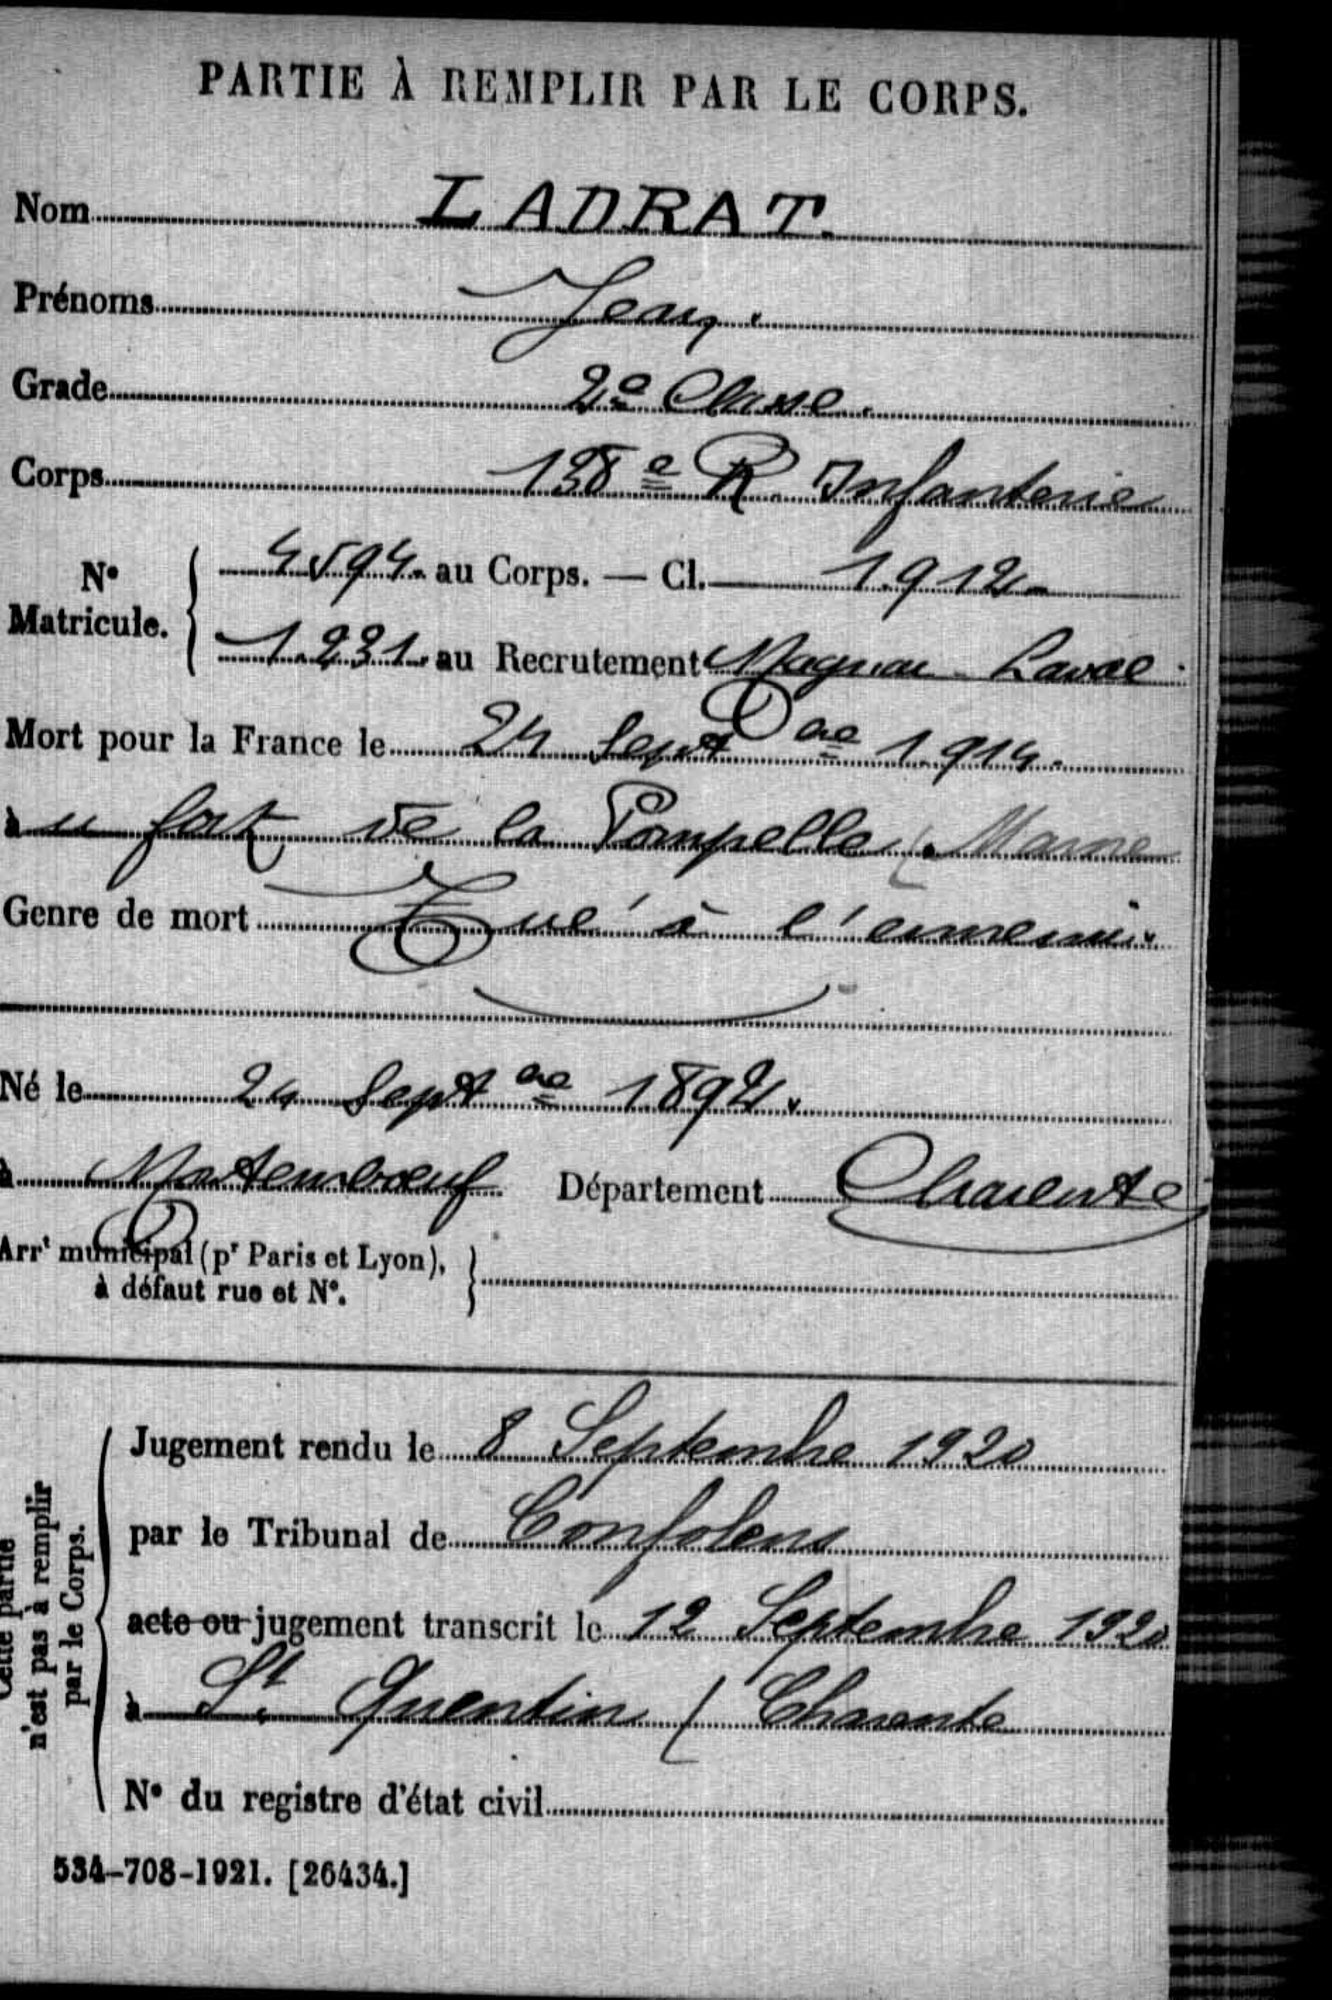 PARTIE À REMPLIR PAR LE CORPS.
Nom LADRAT.
Prénoms Jean.
Grade 2e Classe.
Corps 138e R. Infanterie
No Matricule. { 4594. au Corps. — Cl. 1912.
1.231. au Recrutement Magnac-Laval.
Mort pour la France le 24 Septbre 1914.
à u fort de la Pompelle (Marne
Genre de mort Tué à l'ennemi.
Né le 24 Septbre 1892.
à Montembœuf Département Charente
Arrt municipal (pr Paris et Lyon), }
à défaut rue et No.
Cette partie
n'est pas à remplir
par le Corps.
Jugement rendu le 8 Septembre 1920
par le Tribunal de Confolens
acte ou jugement transcrit le 12 Septembre 1920
à St. Quentin (Charente
No du registre d'état civil
534-708-1921. [26434.]